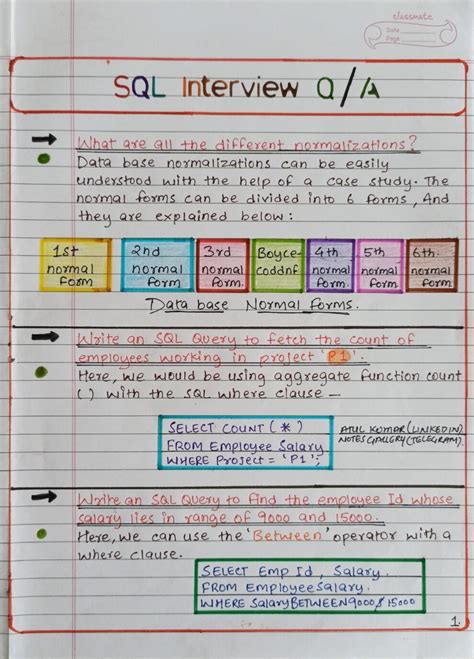 classmate
Date
Page
SQL Interview Q/A
What are all the different normalizations?
Data base normalizations can be easily
understood with the help of a case study. The
normal forms can be divided into 6 forms, And
they are explained below:
1st normal form
2nd normal form
3rd normal form.
Boyce-coddnf
4th normal form.
5th normal form.
6th. normal form
Data base Normal forms.
Write an SQL Query to fetch the count of
employees working in project 'P1'.
Here, we would be using aggregate function count
() with the SQL where clause –
SELECT COUNT (*)
FROM Employee Salary
WHERE Project = 'P1';
ATUL KUMAR (LINKEDIN)
NOTES GALLERY (TELEGRAM).
Write an SQL Query to find the employee Id whose
salary lies in range of 9000 and 15000.
Here, we can use the 'Between' operator with a
where clause.
SELECT Emp Id, Salary
FROM EmployeeSalary.
WHERE SalaryBETWEEN9000 & 15000
1.